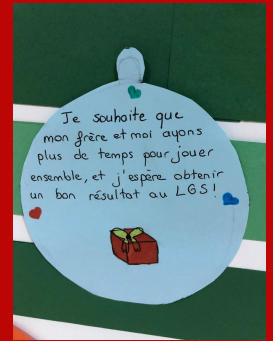 Je souhaite que
mon frère et moi ayons
plus de temps pour jouer
ensemble, et j'espère obtenir
un bon résultat au LGS!